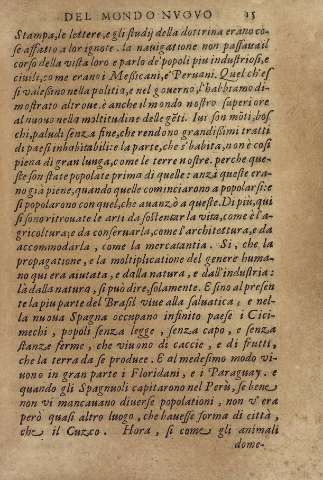 DEL MONDO NVOVO 15
Stampa, le lettere, e gli studij della dottrina erano co-
se affatto a lor ignote. la nauigatione non passaua il
corso della vista loro e parlo de' popoli piu industriosi, e
ciuili, come erano i Messicani, e' Peruani. Quel ch' es
si valessino nella politia, e nel gouerno, l' habbiamo di-
mostrato altroue. è anche il mondo nostro superiore
al nuouo nella moltitudine delle gēti. Iui son mōti, bos
chi, paludi senza fine, che rendono grandissimi tratti
di paesi inhabitabili: e la parte, che s' habita, non è cosi
piena di gran lunga, come le terre nostre. perche que-
ste son state popolate prima di quelle: anzi queste era-
no già piene, quando quelle cominciarono a popolarsi: e
si popolarono con quel, che auanzò a queste. Di piu, qui
si sono ritrouate le arti da sostentar la vita, come è l' a-
gricoltura; e da conseruarla, come l' architettura, e da
accommodarla, come la mercatantia. Si, che la
propagatione, e la moltiplicatione del genere huma-
no qui era aiutata, e dalla natura, e dall' industria:
là dalla natura, si può dire, solamente. E sino al presen
te la piu parte del Brasil viue alla saluatica, e nel-
la nuoua Spagna occupano infinito paese i Cici-
mechi, popoli senza legge, senza capo, e senza
stanza ferme, che viuono di caccie, e di frutti,
che la terra da se produce. E al medesimo modo vi-
uono in gran parte i Floridani, e i Paraguay. e
quando gli Spagnuoli capitarono nel Perù, se bene
non vi mancauano diuerse popolationi, non v' era
però quasi altro luogo, che hauesse forma di città,
che il Cuzco. Hora, si come gli animali
dome-